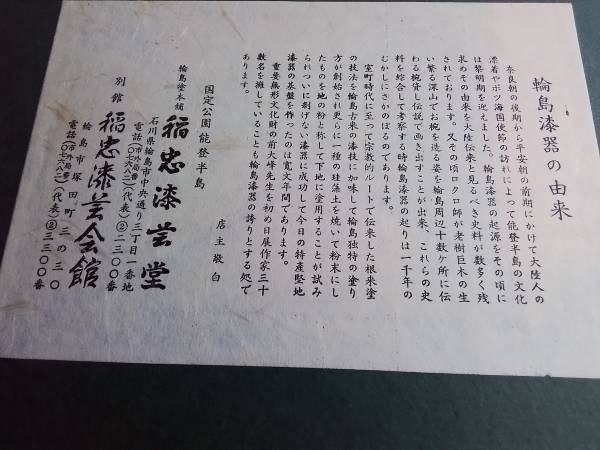 輪島漆器の由来
奈良朝の後期から平安朝の前期にかけて大陸人の
漂着やボツ海国使節の訪れによって能登半島の文化
は黎明期を迎えました。輪島漆器の起源をその頃に
求めその由来を大陸伝来と見るべき史料が数多く残
されております。又その頃ロクロ師が老樹巨木の生
い繁る深山でお椀を造る姿を輪島周辺十数ケ所に伝
わる椀貸し伝説で画き出すことが出来、これらの史
料を綜合して考察する時輪島漆器の起りは一千年の
むかしにさかのぼるのであります。
室町時代に至って宗教的ルートで伝来した根来塗
の技法を輪島古来の漆技に加味して輪島独特の塗り
方が創始され更らに一種の珪藻土を焼いて粉末にし
たものを地の粉と称して下地に塗用することが試み
られついに剥げない漆器に成功して今日の特産堅地
漆器の基盤を作ったのは寛文年間であります。
重要無形文化財の前大峰先生を初め日展作家三十
数名を擁していることも輪島漆器の誇りとする処で
あります。
店主敬白
国定公園能登半島
輪島塗本舗 稲忠漆芸堂
石川県輪島市中央通り三丁目一番地
電話(代表)②二三〇〇番
別館 稲忠漆芸会館
輪島市塚田町三の三〇
電話(代表)②二三〇〇番